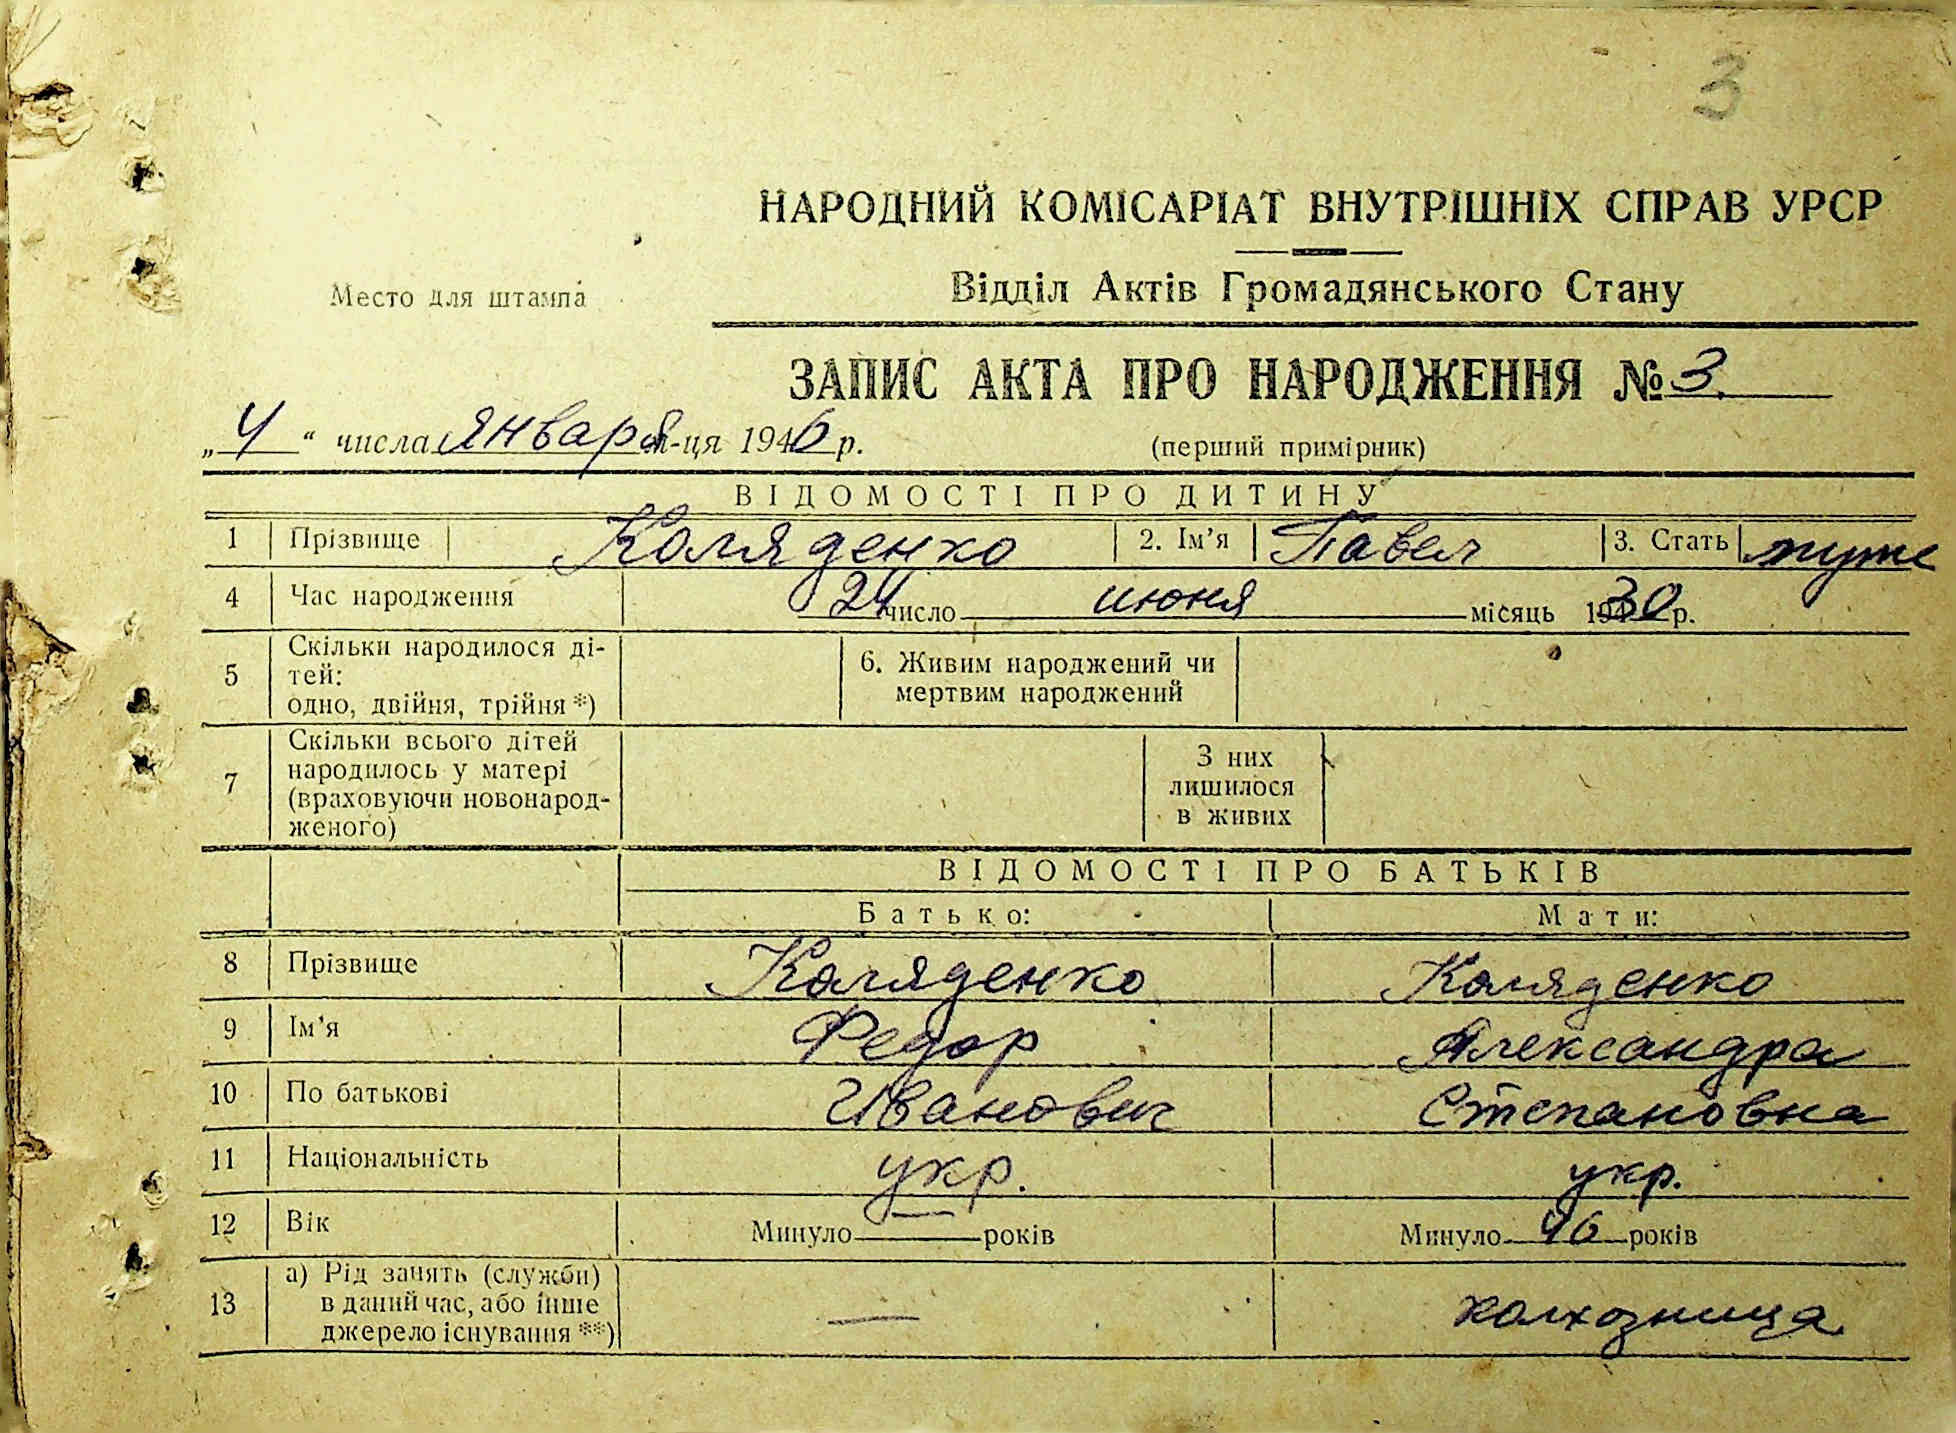 3
НАРОДНИЙ КОМІСАРІАТ ВНУТРІШНІХ СПРАВ УРСР
Место для штампа
Відділ Актів Громадянського Стану
ЗАПИС АКТА ПРО НАРОДЖЕННЯ № 3.
„4“ числа января м-ця 1946 р.
(перший примірник)
ВІДОМОСТІ ПРО ДИТИНУ
1 Прізвище Коляденко 2. Ім’я Павел 3. Стать муже
4 Час народження 24 число июня місяць 1930 р.
5 Скільки народилося ді-
тей:
одно, двійня, трійня *)
6. Живим народжений чи
мертвим народжений
7 Скільки всього дітей
народилось у матері
(враховуючи новонарод-
женого)
З них
лишилося
в живих
ВІДОМОСТІ ПРО БАТЬКІВ
Батько: Мати:
8 Прізвище Коляденко Коляденко
9 Ім’я Федор Александра
10 По батькові Иванович Степановна
11 Національність укр. укр.
12 Вік Минуло — років Минуло 46 років
13 а) Рід занять (служби)
в даний час, або інше
джерело існування **)
— колхозница